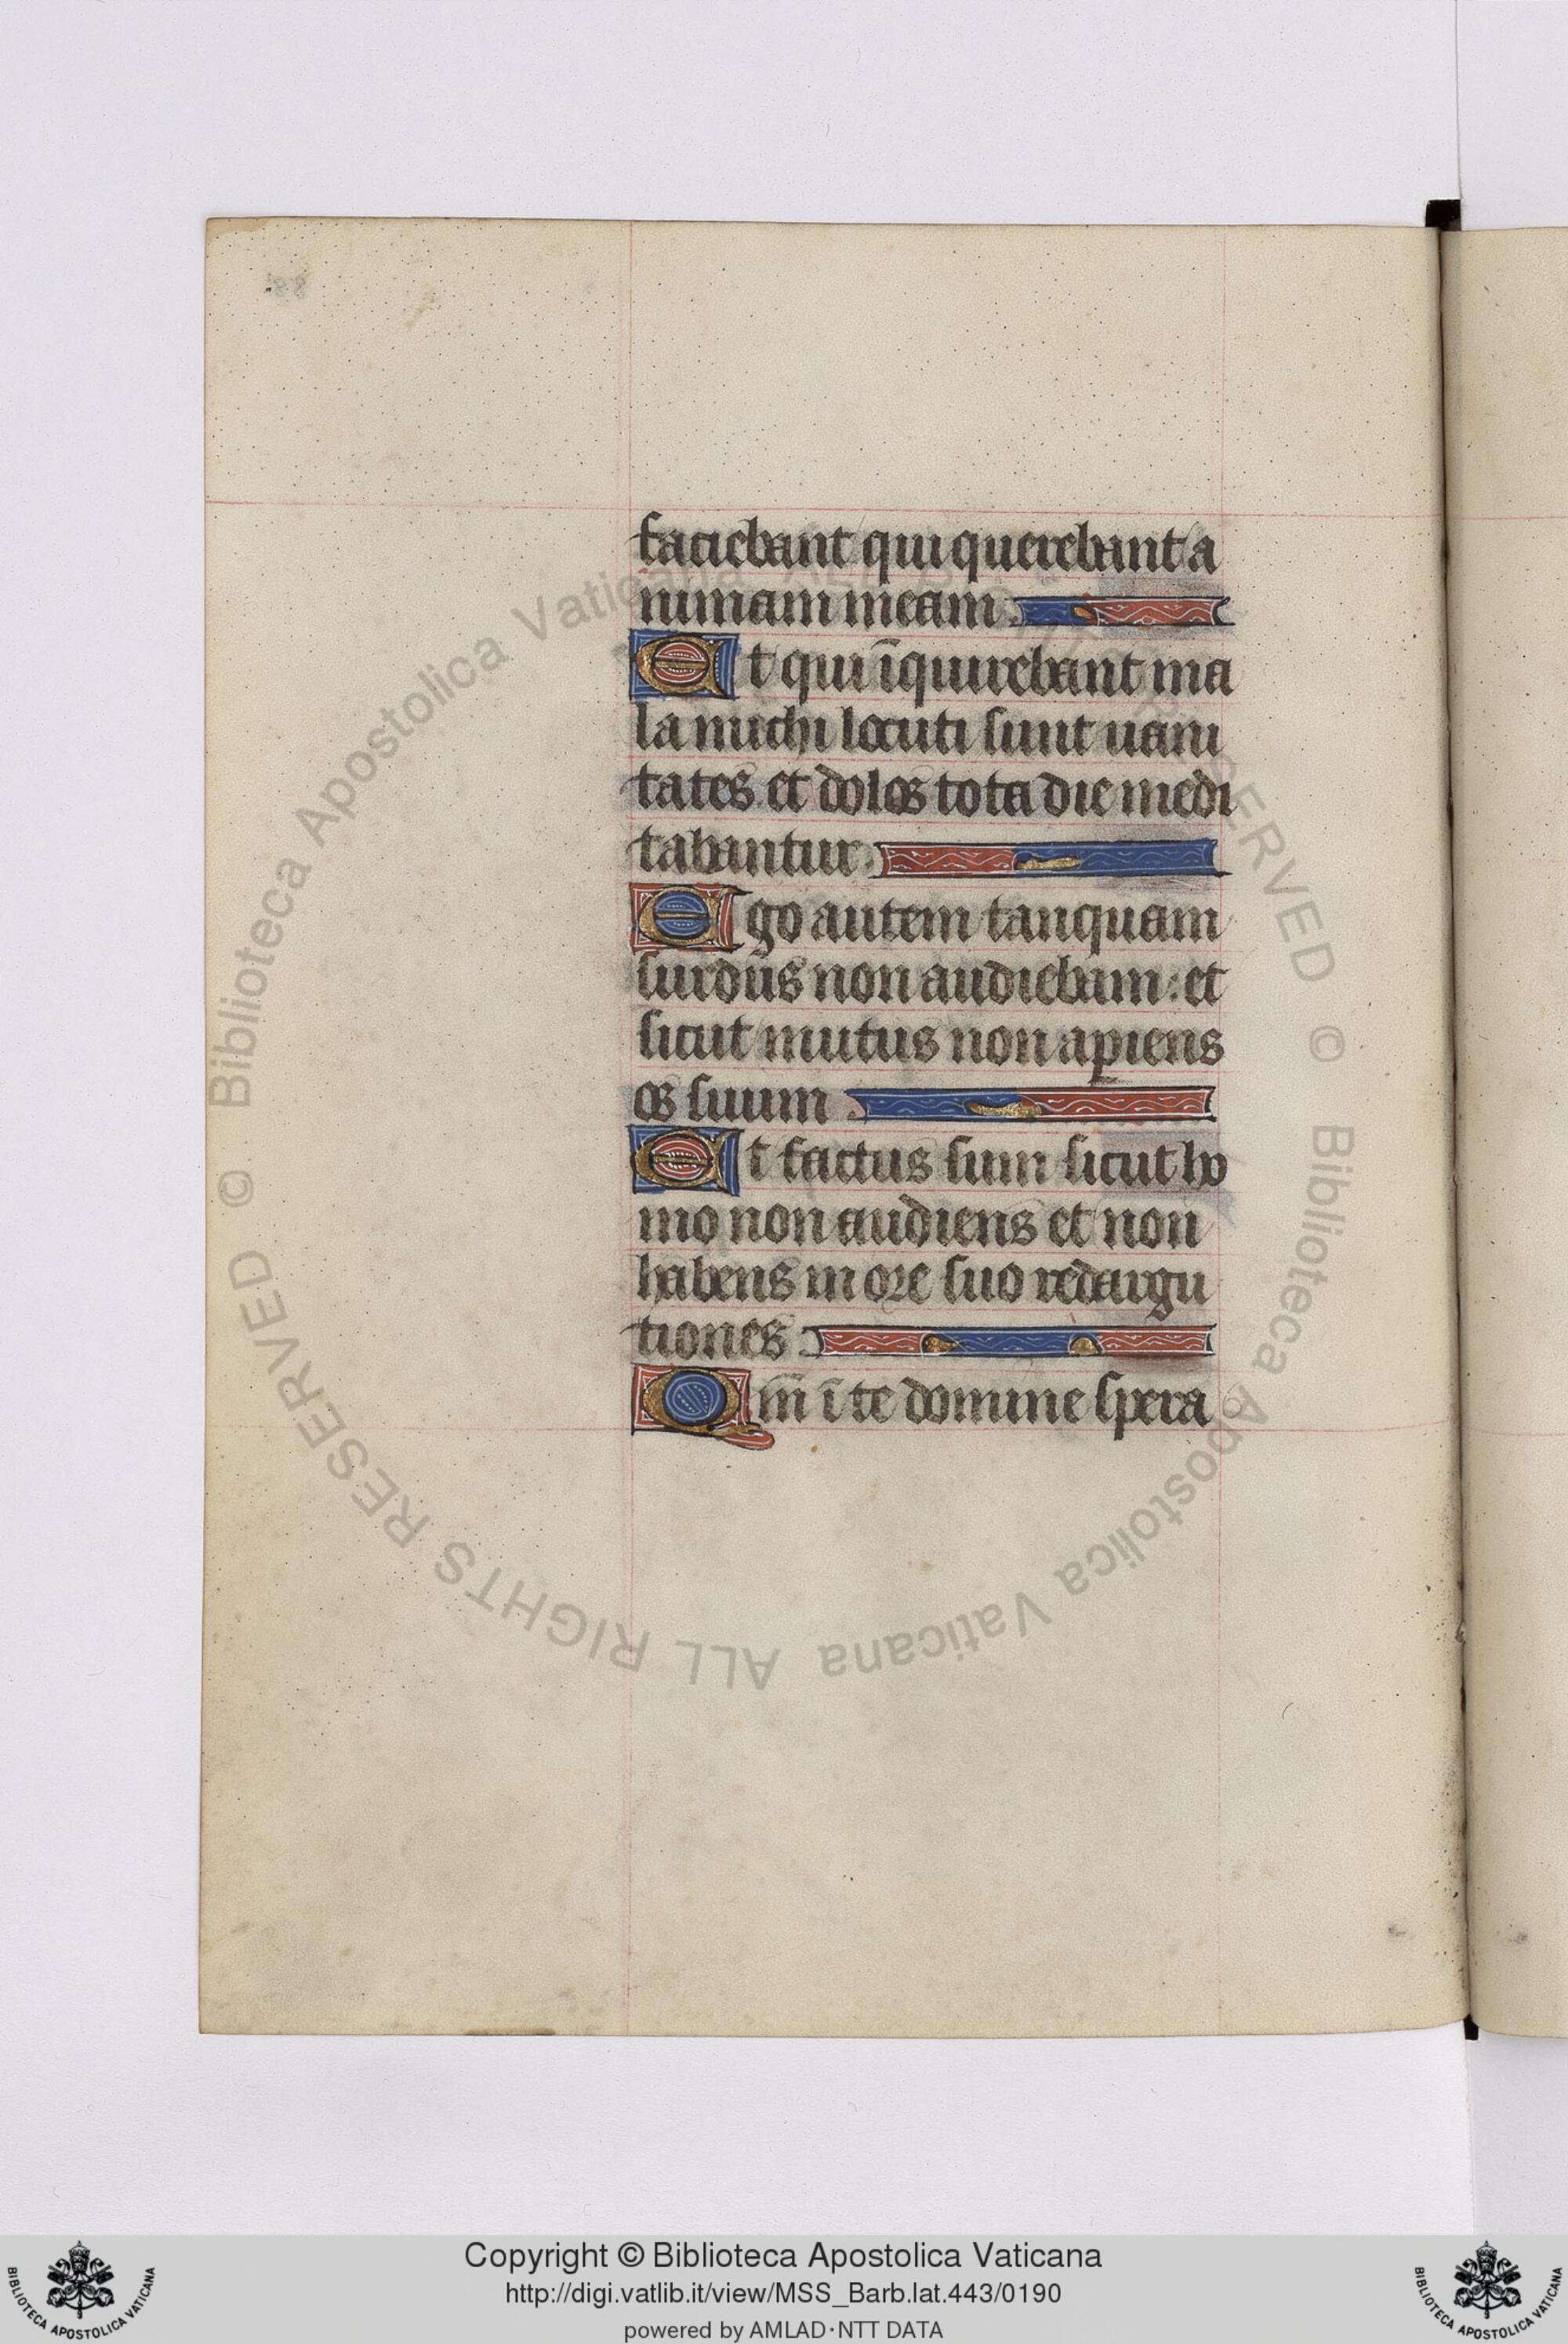 faciebant qui querebant a
nimam meam.
Et qui īquirebant ma
la michi locuti sunt uani
tates et dolos tota die medi
tabantur.
Ego autem tanquam
surdus non audiebam: et
sicut mutus non apiens
os suum
Et factus sum sicut ho
mo non audiens et non
habens in ore suo redargu
tiones.
Qm̄ ī te domine spera
© Biblioteca Apostolica Vaticana ALL RIGHTS RESERVED © Biblioteca Apostolica Vaticana ALL RIGHTS RESERVED
Copyright © Biblioteca Apostolica Vaticana
http://digi.vatlib.it/view/MSS_Barb.lat.443/0190
powered by AMLAD·NTT DATA
BIBLIOTECA APOSTOLICA VATICANA
BIBLIOTECA APOSTOLICA VATICANA